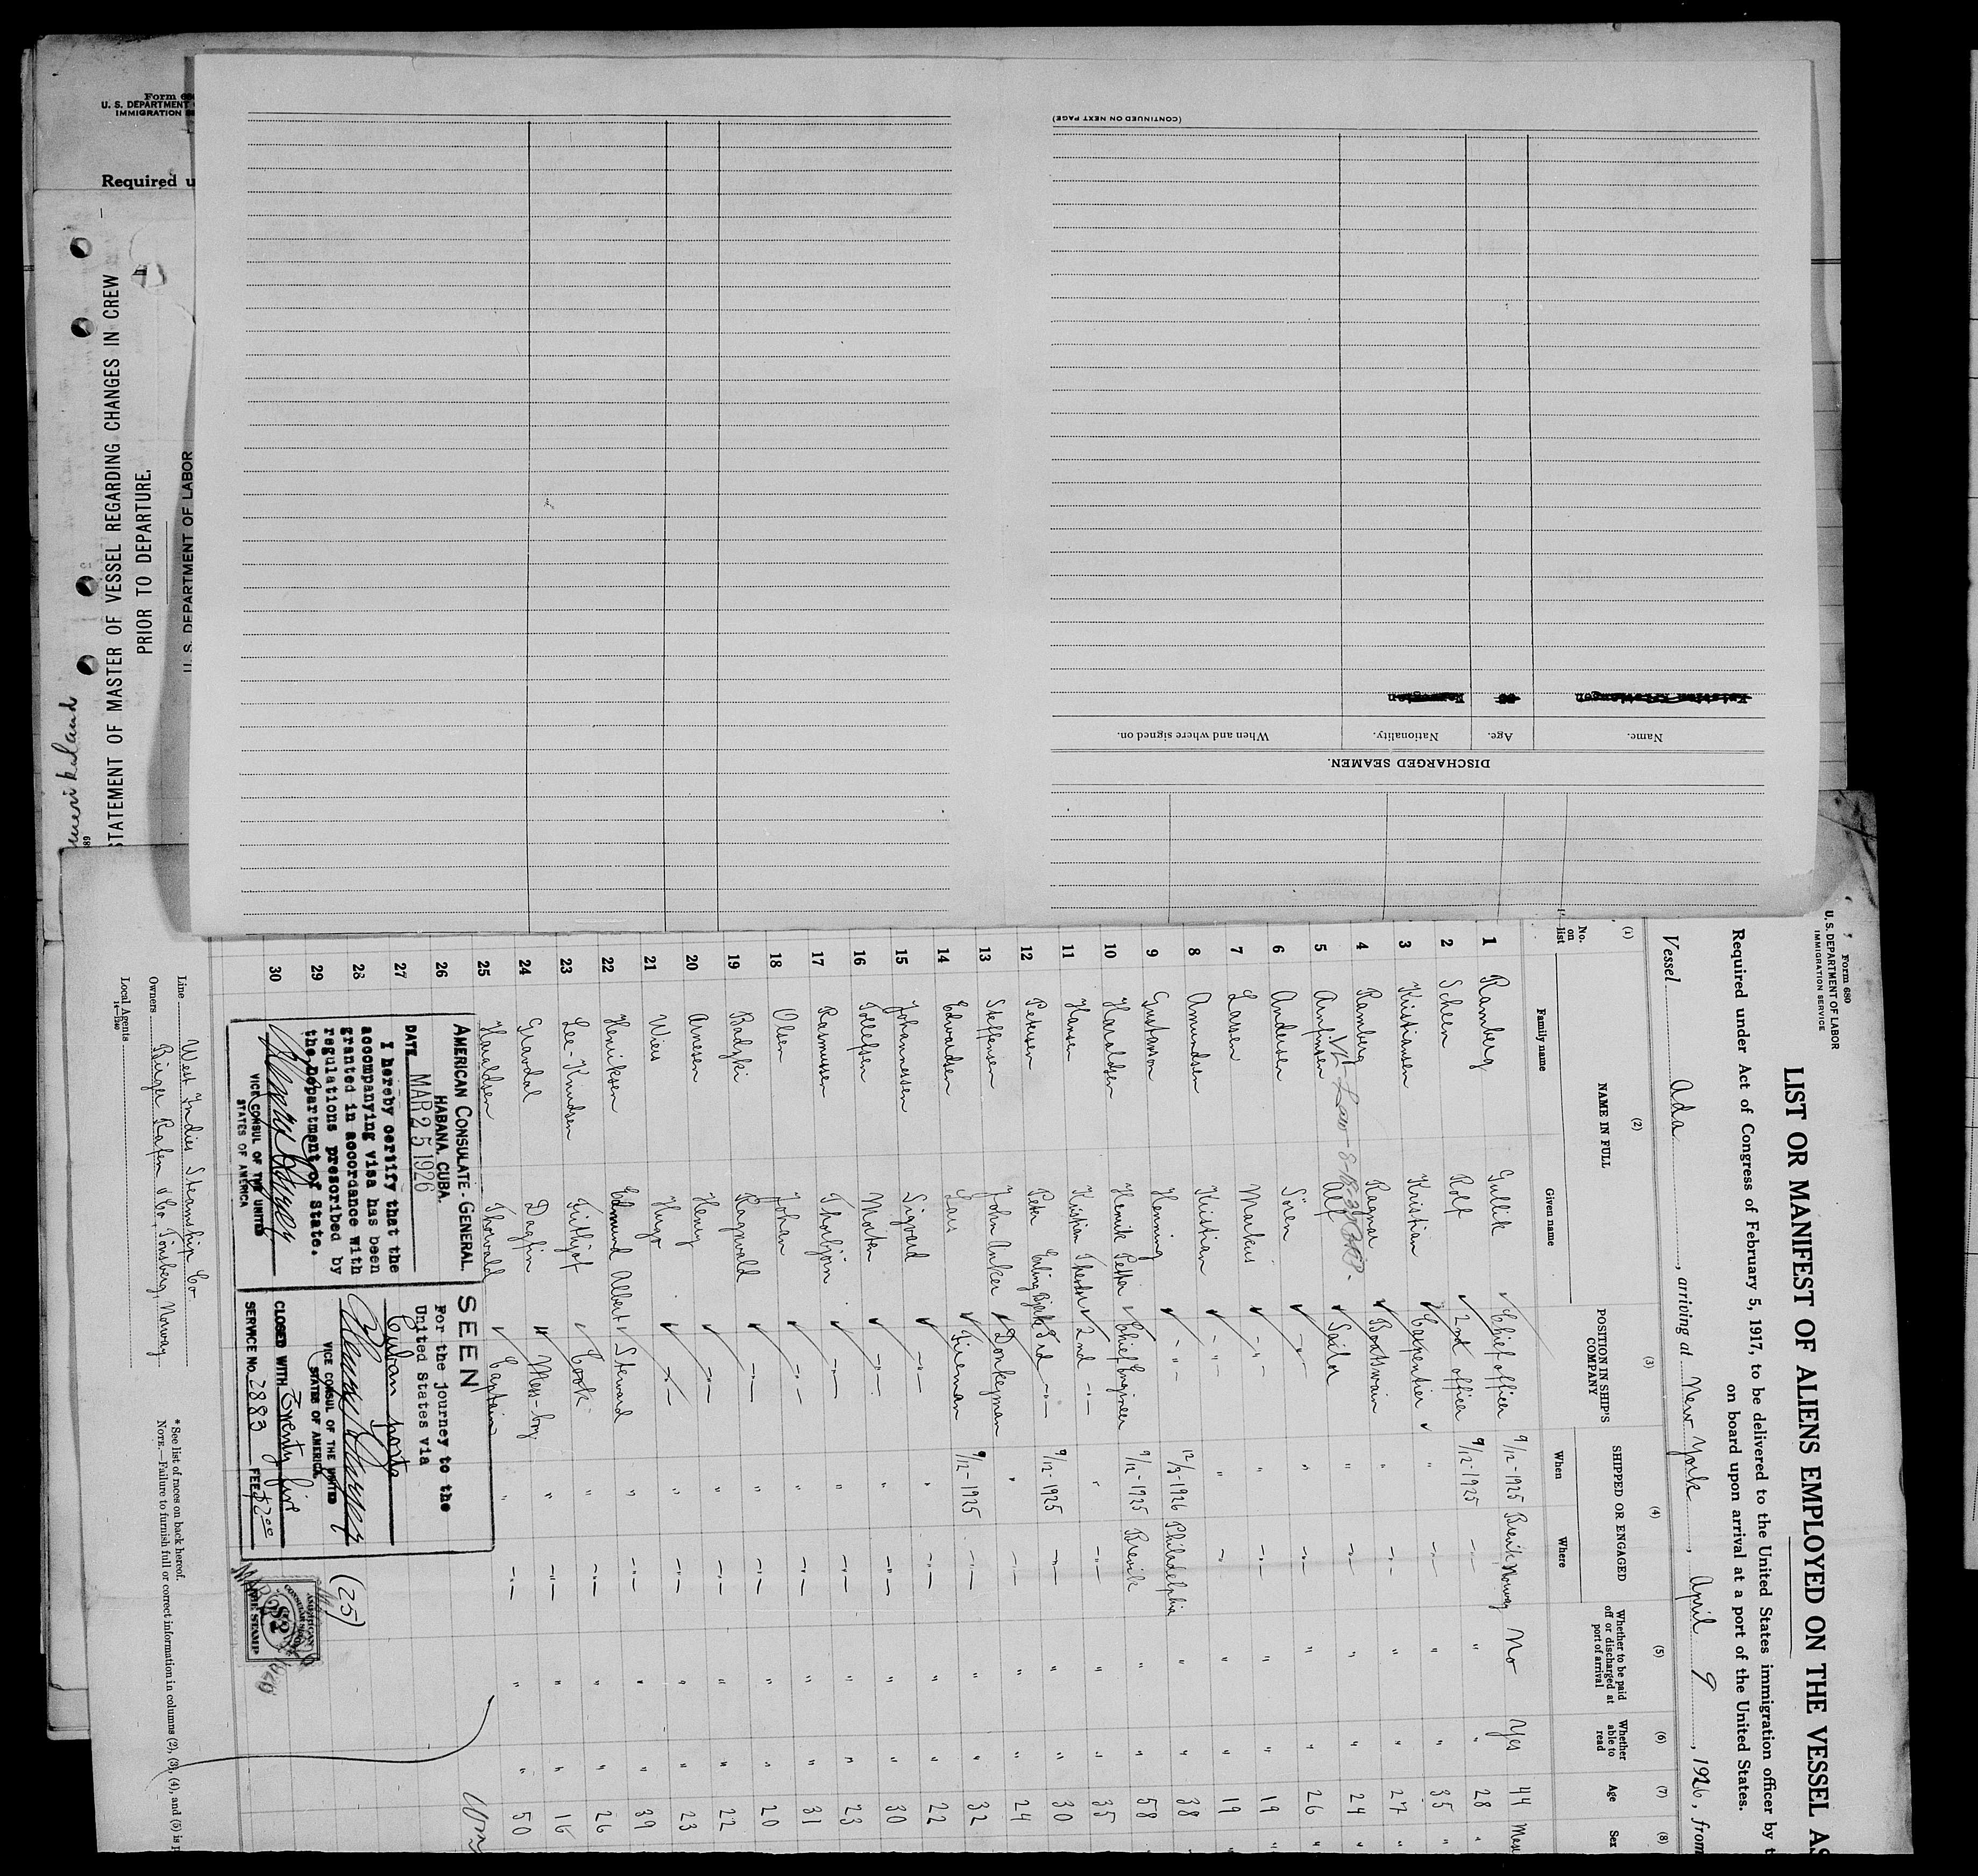 Form 680
U. S. DEPARTMENT OF LABOR
IMMIGRATION SERVICE
LIST OR MANIFEST OF ALIENS EMPLOYED ON THE VESSEL AS
Required under Act of Congress of February 5, 1917, to be delivered to the United States immigration officer by t
on board upon arrival at a port of the United States.
Vessel Ada, arriving at New York, April 9, 1926, from
(1) (2) (3) (4) (5) (6) (7) (8)
No. on list NAME IN FULL POSITION IN SHIP'S COMPANY SHIPPED OR ENGAGED Whether to be paid off or discharged at port of arrival Whether able to read Age Sex
Family name Given name When Where
1 Ramberg Gullik ✓ Chief officer 9/12-1925 Brevik Norway No Yes 44
2 Scheen Rolf ✓ 2nd officer 9/12-1925 -"- " " 28 "
3 Kristiansen Kristian ✓ Carpentier ✓ " -"- " " 35 "
4 Ramberg Ragnar ✓ Boatswain " -"- " " 27 "
5 Arnfinsen Alf ✓ Sailor " -"- " " 24 "
6 Andersen Sören ✓ -"- " -"- " " 26 "
7 Lassen Markus ✓ -"- " -"- " " 19 "
8 Amundsen Kristian ✓ -"- " -"- " " 19 "
9 Gustavson Henning ✓ -"- 12/3-1926 Philadelphia " " 38 "
10 Haraldsen Henrik Petter ✓ Chief Engineer 9/12-1925 Brevik " " 58 "
11 Hansen Kristian ✓ 2nd -"- " -"- " " 35 "
12 Petersen Peter Erling ✓ 3rd -"- 9/12-1925 -"- " " 30 "
13 Steffensen John Anker ✓ Donkeyman " -"- " " 24 "
14 Edvardsen Lars ✓ Fireman 9/12-1925 -"- " " 32 "
15 Johannessen Sigvard ✓ -"- " -"- " " 22 "
16 Tollefsen Morten ✓ -"- " -"- " " 30 "
17 Rasmussen Thorbjörn ✓ -"- " -"- " " 23 "
18 Olsen Johan ✓ -"- " -"- " " 31 "
19 Ragnvald ✓ -"- " -"- " " 20 "
20 Arnesen Henry ✓ -"- " -"- " " 22 "
21 Hugo ✓ -"- " -"- " " 23 "
22 Henriksen Edmund Albert ✓ Steward " -"- " " 39 "
23 Lee-Knudsen Frithjof ✓ Cook " -"- " " 26 "
24 Dagfin Mess-boy " -"- " " 16 "
25 Haraldsen Thorvald ✓ Captain " -"- " " 50 "
26
27
28
29
30
AMERICAN CONSULATE-GENERAL
HABANA, CUBA.
DATE MAR 25 1926
I hereby certify that the
accompanying visa has been
granted in accordance with
regulations prescribed by
the Department of State.
VICE CONSUL OF THE UNITED
STATES OF AMERICA
SEEN
For the journey to the
United States via
Cuban ports
VICE CONSUL OF THE UNITED
STATES OF AMERICA
CLOSED WITH Twenty five
SERVICE NO. 2883 FEE $2.00
(25)
AMERICAN
$2
FEE STAMP
Line West Indies Steamship Co
Owners Birger Rafen & Co, Tönsberg, Norway
Local Agents
*See list of races on back hereof.
NOTE.—Failure to furnish full or correct information in columns (2), (3), (4), and (5) is p
DISCHARGED SEAMEN.
Name. Age. Nationality. When and where signed on.
(CONTINUED ON NEXT PAGE)
STATEMENT OF MASTER OF VESSEL REGARDING CHANGES IN CREW
PRIOR TO DEPARTURE.
U. S. DEPARTMENT OF LABOR
Form 680
U. S. DEPARTMENT
IMMIGRATION
Required u